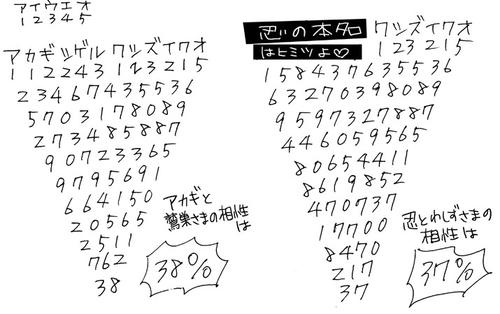 アイウエオ
1 2 3 4 5
アカギシゲル ワシズイワオ
1 1 2 2 4 3 1 2 3 2 1 5
2 3 4 6 7 4 3 5 5 3 6
5 7 0 3 1 7 8 0 8 9
2 7 3 4 8 5 8 8 7
9 0 7 2 3 3 6 5
9 7 9 5 6 9 1
6 6 4 1 5 0
2 0 5 6 5
2 5 1 1
7 6 2
3 8
アカギと
鷲巣さまの相性
は
38%
忍の本名
はヒミツよ♡
ワシズイワオ
1 2 3 2 1 5
1 5 8 4 3 7 6 3 5 5 3 6
6 3 2 7 0 3 9 8 0 8 9
9 5 9 7 3 2 7 8 8 7
4 4 6 0 5 9 5 6 5
8 0 6 5 4 4 1 1
8 6 1 9 8 5 2
4 7 0 7 3 7
1 7 7 0 0
8 4 7 0
2 1 7
3 7
忍とわしずさまの
相性は
37%